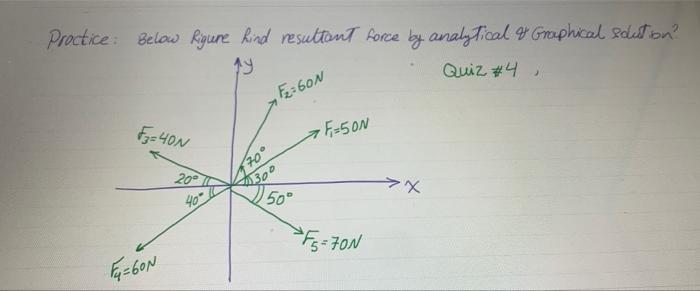 Practice: Below figure find resultant force by analytical & Graphical solution?
Quiz #4,
y
F2=60N
F1=50N
F3=40N
70°
30°
20°
40°
50°
x
F5=70N
F4=60N